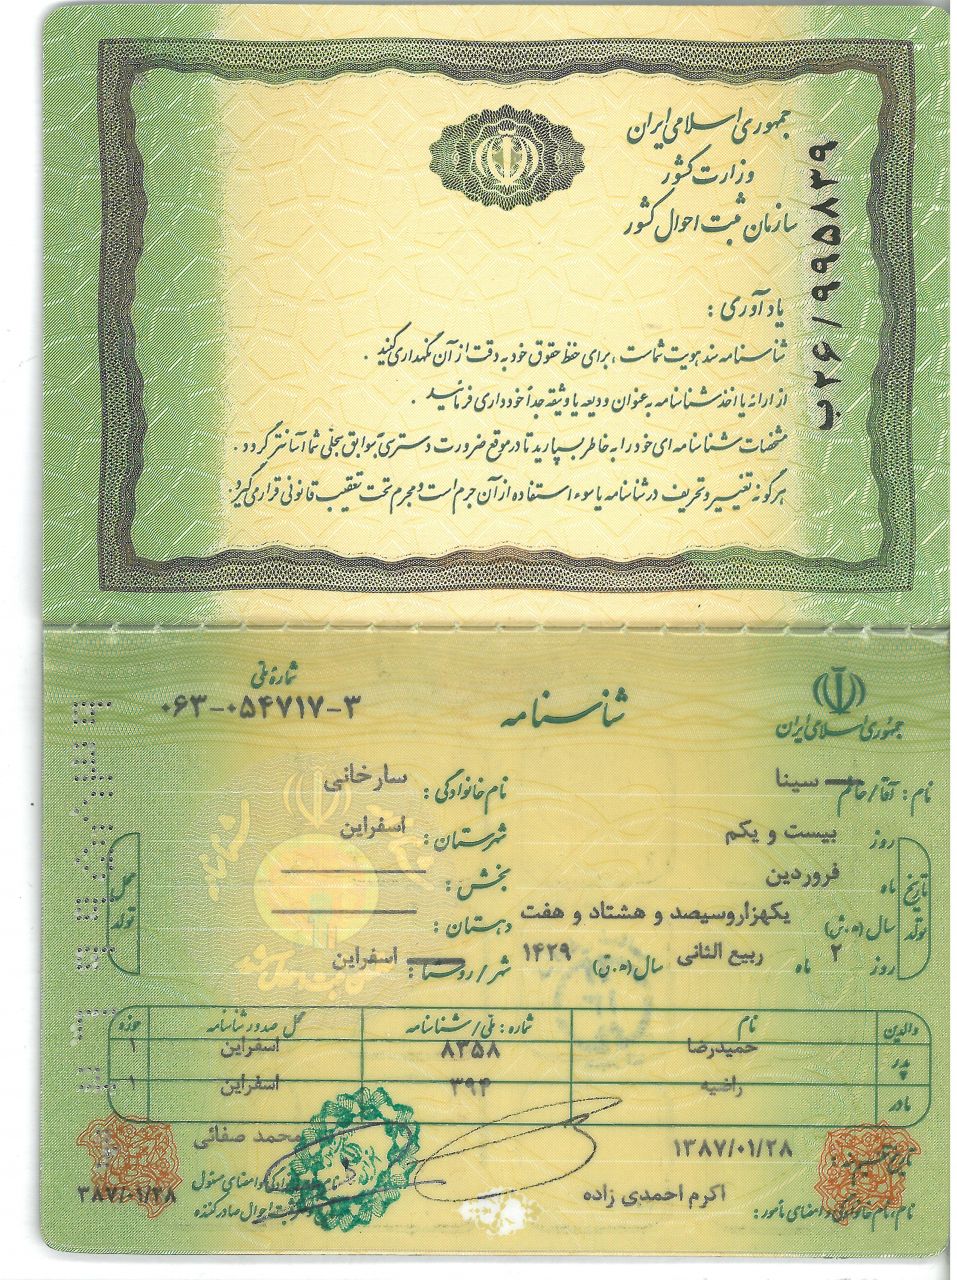 جمهوری اسلامی ایران
وزارت کشور
سازمان ثبت احوال کشور
ب۲۶/۹۹۵۸۳۹
یادآوری :
شناسنامه سند هویت شماست ، برای حفظ حقوق خود به دقت از آن نگهداری کنید .
از ارائه یا اخذ شناسنامه به عنوان ودیعه یا وثیقه جداً خودداری فرمائید .
مشخصات شناسنامه ای خود را به خاطر بسپارید تا در موقع ضرورت دسترسی به سوابق سجلی شما آسانتر گردد .
هرگونه تغییر و تحریف در شناسنامه یا سوء استفاده از آن جرم است و مجرم تحت تعقیب قانونی قرار می گیرد .
جمهوری اسلامی ایران
شناسنامه
شماره ملی
۰۶۳-۰۵۴۷۱۷-۳
نام : آقا/خانم سینا
نام خانوادگی : سارخانی
تاریخ تولد
روز بیست و یکم
ماه فروردین
سال (ه.ش) یکهزاروسیصد و هشتاد و هفت
روز ۲ ماه ربیع الثانی سال (ه.ق) ۱۴۲۹
محل تولد
شهرستان : اسفراین
بخش :
دهستان :
شهر/روستا : اسفراین
والدین نام شماره : ملی/شناسنامه محل صدور شناسنامه حوزه
پدر حمیدرضا ۸۳۵۸ اسفراین ۱
مادر راضیه ۳۹۴ اسفراین ۱
تاریخ تنظیم سند : ۱۳۸۷/۰۱/۲۸
نام، نام خانوادگی و امضای مأمور : اکرم احمدی زاده
محمد صفائی
نام، نام خانوادگی و امضای مسئول
ثبت احوال صادرکننده
۱۳۸۷/۰۱/۲۸